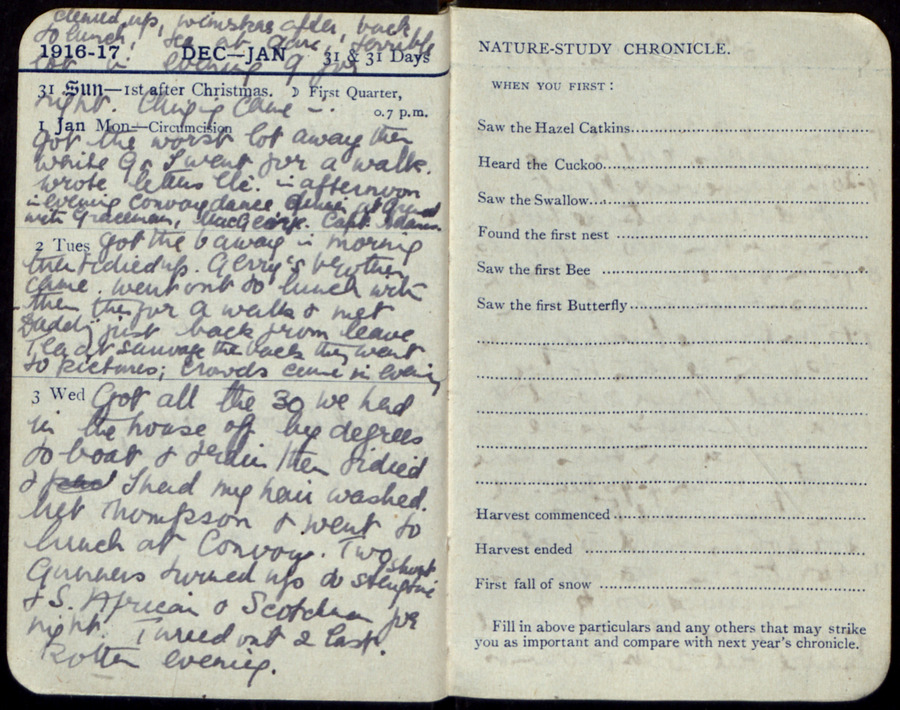 cleared up, after, back
to lunch, tea at terrible
1916-17 DEC—JAN 31 & 31 Days
lot in evening 9 for
31 Sun—1st after Christmas. ☽ First Quarter,
0.7 p.m.
night. came —.
1 Jan Mon—Circumcision
Got the worst lot away then
while G & I went for a walk.
wrote letters etc. in afternoon
in evening Convoy dance at
with Graceman, MacGeorge. Capt. Adams.
2 Tues Got the 6 away in morning
then tidied up. Gerry's brother
came. went out to lunch with
them for a walk & met
Daddy just back from leave
Tea at Sauvage the back they went
to pictures; crowds came in evening
3 Wed Got all the 30 we had
in the house off by degrees
to boat & train then tidied
& I had my hair washed.
Met Thompson & went to
lunch at Convoy. Two
Gunners turned up
& S. African & Scotchman for
night. Turned out 2 last.
Rotten evening.
NATURE-STUDY CHRONICLE.
WHEN YOU FIRST:
Saw the Hazel Catkins
Heard the Cuckoo
Saw the Swallow
Found the first nest
Saw the first Bee
Saw the first Butterfly
Harvest commenced
Harvest ended
First fall of snow
Fill in above particulars and any others that may strike
you as important and compare with next year's chronicle.